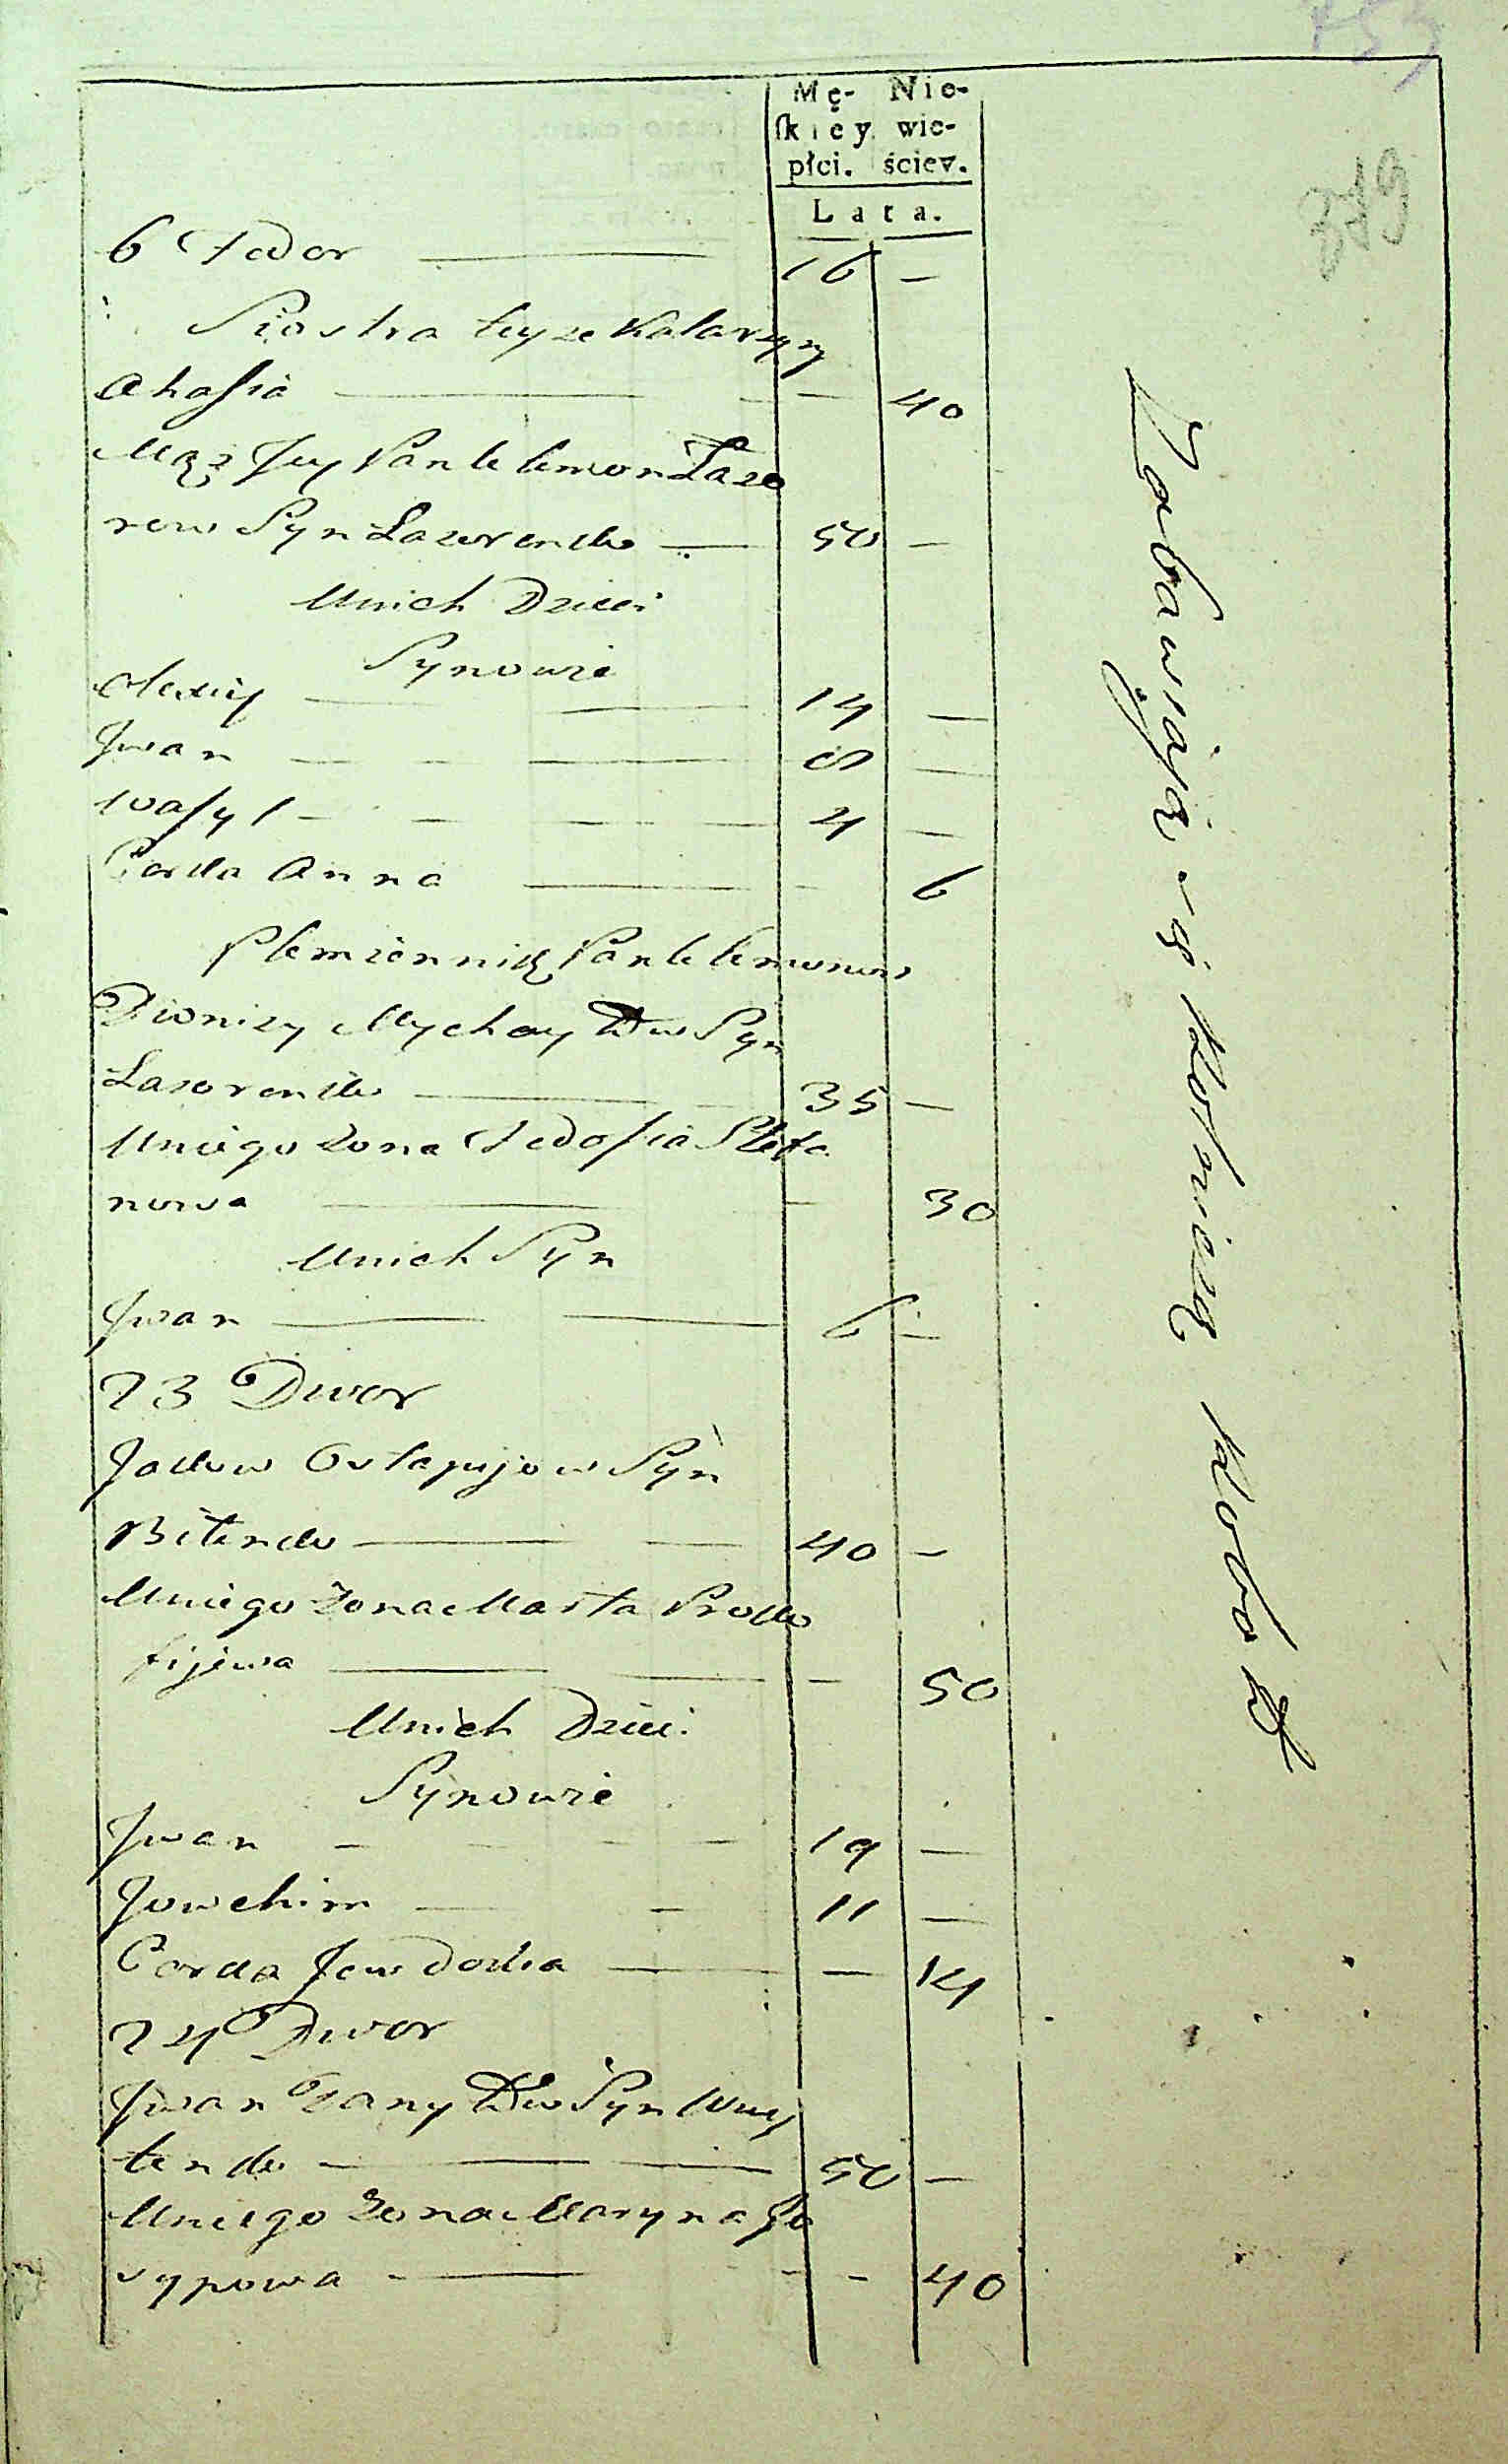 Mę- Nie-
ſkiey wie-
płci. ściey.
Lata.
319
6 Fedor — 16 —
Siostra teyże Kataryny
Ahafia — — 40
Mąż Jey Pantelemon Łazo
row Syn Łazorenko — 50 —
Unich Dzieci
Synowie
Olexiy — 14 —
Jwan — 8 —
Wasyl — 4 —
Corka Anna — — 6
Plemiennik Pantelemonow
Dionizy Mychayłow Syn
Łazorenko — 35 —
Uniego Żona Fedosia Stefa
nowa — — 30
Unich Syn
Jwan — 6 —
23 Dwor
Jakow Ostapijow Syn
Bitenko — 40 —
Uniego Żona Marta Proko
fijewa — — 50
Unich Dzieci
Synowie
Jwan — 19 —
Jowchim — 11 —
Corka Jewdokia — — 14
24 Dwor
Jwan Dany łow Syn Wuy
tenko — 50 —
Uniego Żona Maryna Jo
sypowa — — 40
Zabawiaią się Rolniczą Robotą